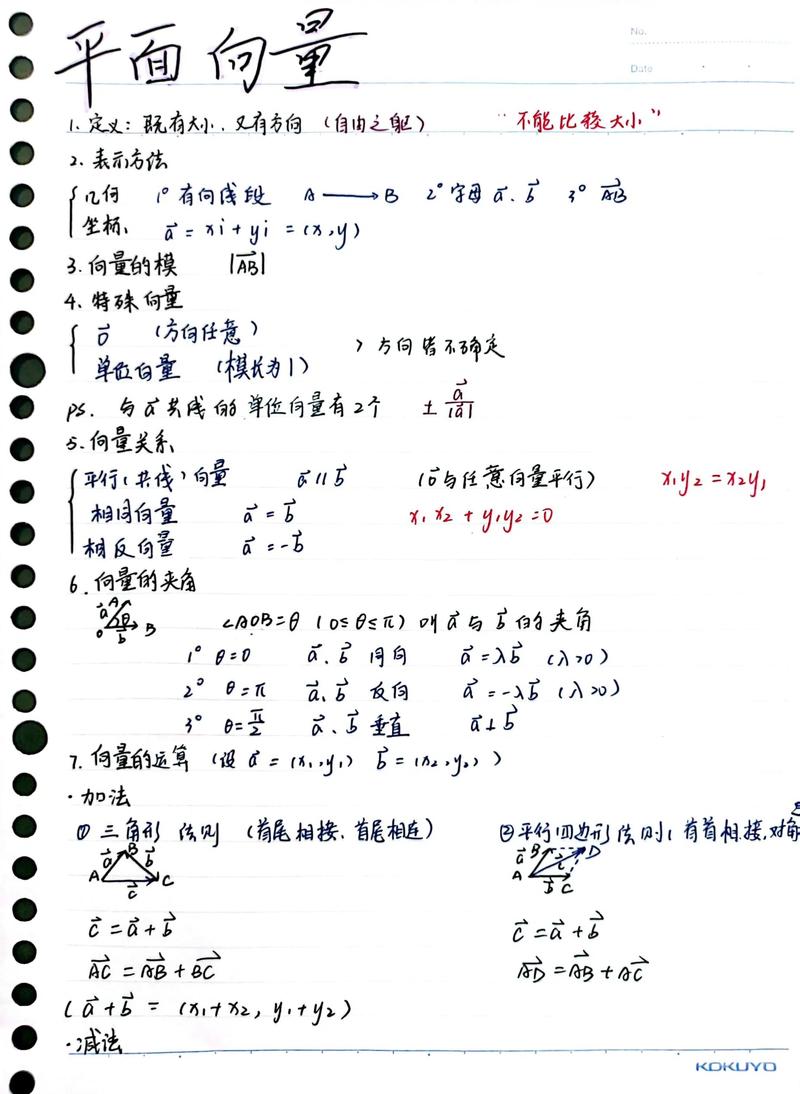 平面向量
No.
Date
1. 定义: 既有大小、又有方向 (自由之躯) “不能比较大小”
2. 表示方法
几何 1° 有向线段 A → B 2° 字母 a⃗、b⃗ 3° AB⃗
坐标、 a⃗ = xi + yi = (x,y)
3. 向量的模 |AB⃗|
4. 特殊向量
0⃗ (方向任意)
单位向量 (模长为1) > 方向皆不确定
ps. 与a⃗共线的单位向量有2个 ± a⃗/|a⃗|
5. 向量关系
平行(共线)向量 a⃗ // b⃗ (0⃗与任意向量平行) x₁y₂ = x₂y₁
相同向量 a⃗ = b⃗ x₁x₂ + y₁y₂ = 0
相反向量 a⃗ = -b⃗
6. 向量的夹角
a⃗ A θ O b⃗ B ∠AOB = θ (0≤θ≤π) 叫a⃗与b⃗的夹角
1° θ=0 a⃗、b⃗ 同向 a⃗ = λb⃗ (λ>0)
2° θ=π a⃗、b⃗ 反向 a⃗ = -λb⃗ (λ>0)
3° θ=π/2 a⃗、b⃗ 垂直 a⃗⊥b⃗
7. 向量的运算 (设a⃗ = (x₁,y₁) b⃗ = (x₂,y₂))
·加法
① 三角形法则 (首尾相接、首尾相连) ② 平行四边形法则(首首相接,对角
A a⃗ B b⃗ C c⃗ A a⃗ B b⃗ C c⃗ D
c⃗ = a⃗ + b⃗ c⃗ = a⃗ + b⃗
AC⃗ = AB⃗ + BC⃗ AD⃗ = AB⃗ + AC⃗
(a⃗ + b⃗ = (x₁+x₂, y₁+y₂)
·减法
KOKUYO